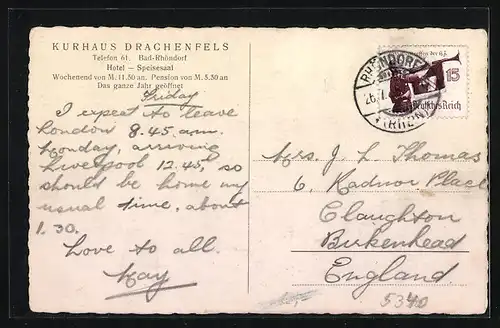 KURHAUS DRACHENFELS
Telefon 61. Bad-Rhöndorf
Hotel – Speisesaal
Wochenend von M. 11.50 an. Pension von M. 5.50 an
Das ganze Jahr geöffnet
Friday
I expect to leave
London 8.45 a.m.
Monday, arriving
Liverpool 12.45, so
should be home my
usual time, about
1.30.
Love to all.
Kay
RHÖNDORF
(RHEIN)
15
Deutsches Reich
Mrs. J. L. Thomas
6, Radnor Place
Claughton
Birkenhead
England.
5340